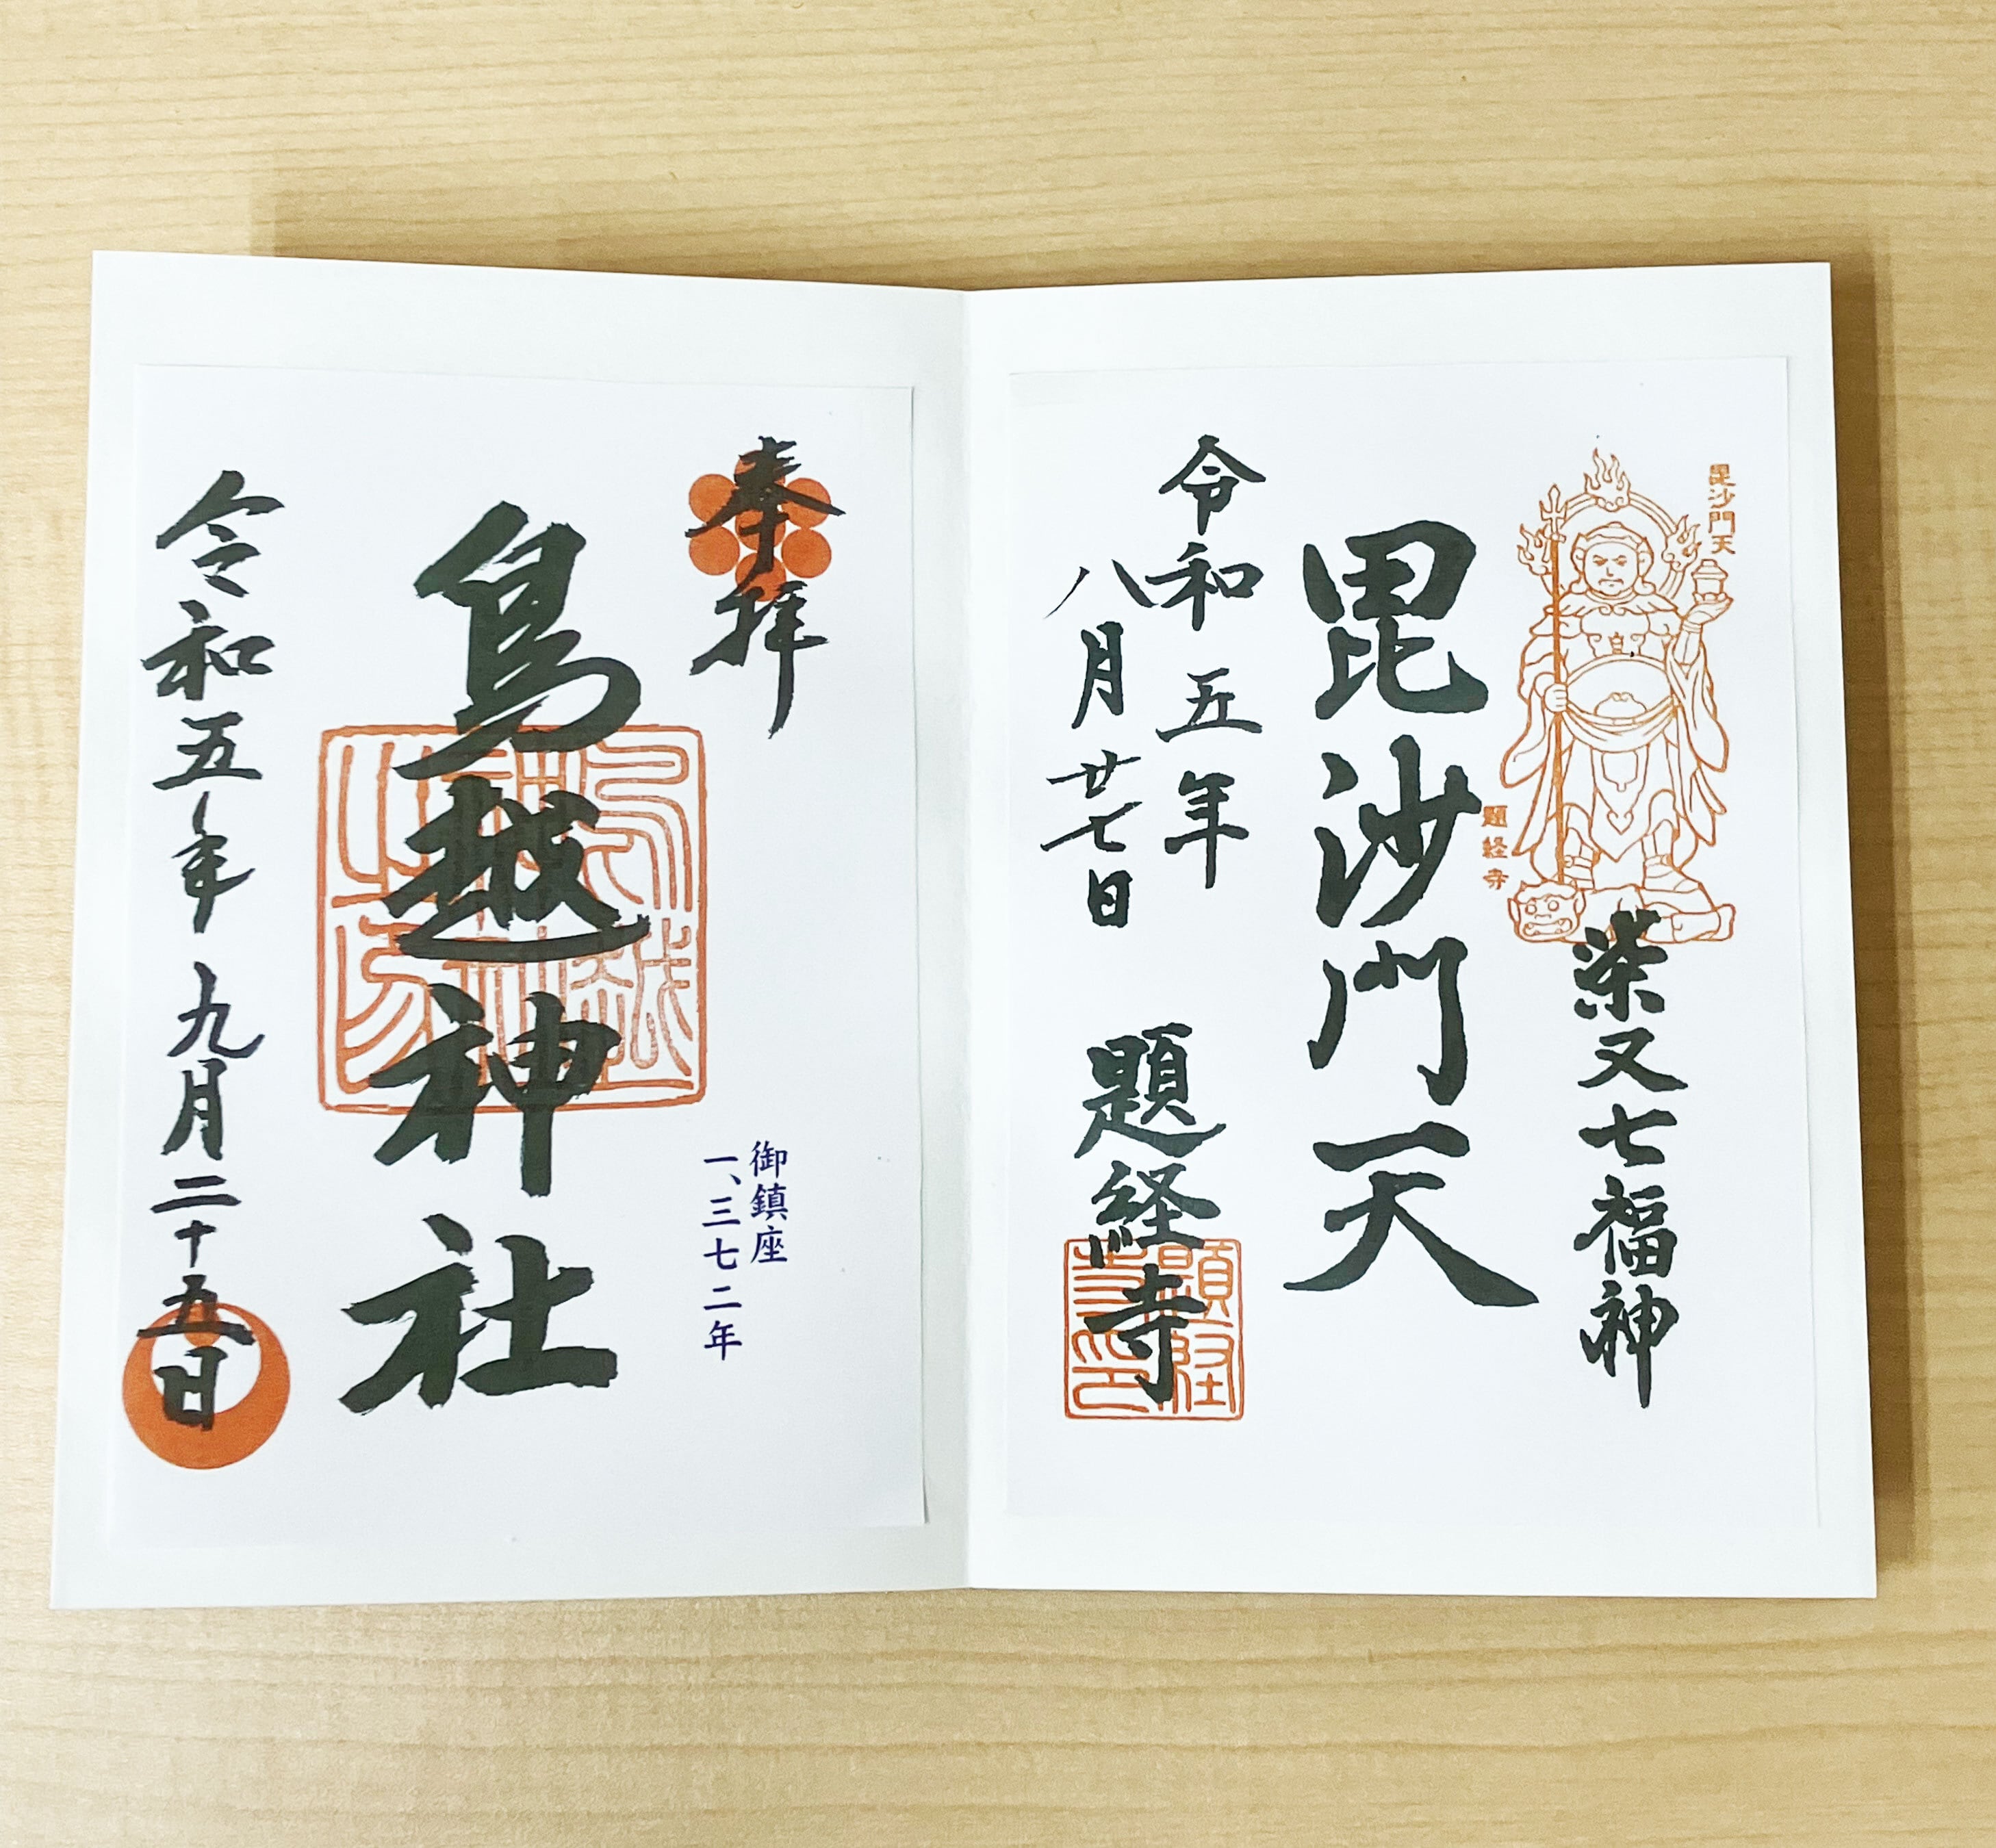 毘沙門天
柴又七福神
題経寺
毘沙門天
令和五年
八月廿七日
題経寺
奉拝
御鎮座
一、三七二年
鳥越神社
令和五年九月二十五日